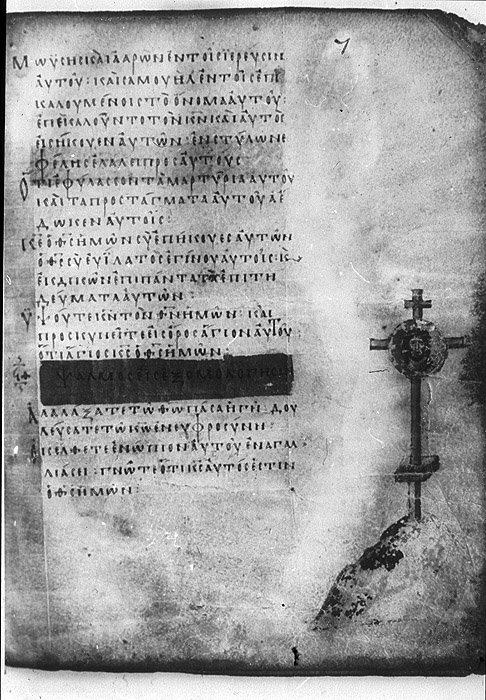 Μωϋσῆς καὶ ἀαρὼν ἐν τοῖς ἱερεῦσιν
αὐτοῦ· καὶ σαμουὴλ ἐν τοῖς ἐπι
καλουμένοις τὸ ὄνομα αὐτοῦ·
ἐπεκαλοῦντο τὸν κν καὶ αὐτὸς
εἰσήκουεν αὐτῶν· ἐν στύλω νε
φέλης ἐλάλει πρὸς αὐτούς
Ὅτι ἐφύλασσον τὰ μαρτύρια αὐτοῦ
καὶ τὰ προστάγματα αὐτοῦ ἃ ἔ
δωκεν αὐτοῖς:
Κε ὁ θς ἡμῶν σὺ ἐπήκουες αὐτῶν
ὁ θς σὺ εὐίλατος ἐγίνου αὐτοῖς· καὶ
ἐκδικῶν ἐπὶ πάντα τὰ ἐπιτη
δεύματα αὐτῶν:
Ὑψοῦτε κν τὸν θν ἡμῶν· καὶ
προσκυνεῖτε εἰς ὄρος ἅγιον αὐτοῦ
ὅτι ἅγιος κς ὁ θς ἡμῶν
ψαλμὸς εἰς ἐξομολόγησιν
Ἀλαλάξατε τῶ θω πᾶσα ἡ γῆ δου
λεύσατε τῶ κω ἐν εὐφροσύνη:
εἰσέλθετε ἐνώπιον αὐτοῦ ἐν ἀγαλ
λιάσει: γνῶτε ὅτι κς αὐτός ἐστιν
ὁ θς ἡμῶν: